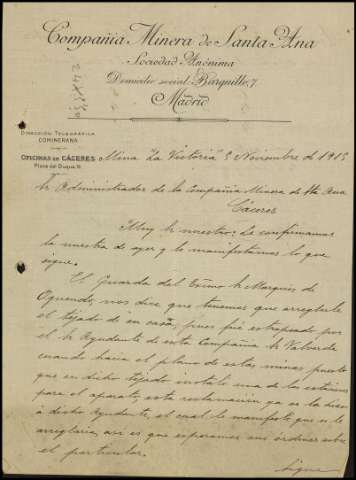 Compañia Minera de Santa Ana
Sociedad Anónima
Domicilio social: Barquillo, 7
Madrid
DIRECCIÓN TELEGRÁFICA
COMINERANA
OFICINAS EN CÁCERES
Plaza del Duque
Mina "La Victoria" 5 Noviembre de 1915
Sr Administrador de la Compañia Minera de Sta Ana
Cáceres
Muy Sr nuestro: Le confirmamos
la nuestra de ayer y le manifestamos lo que
sigue.
El Guarda del Exmo Sr Marqués de
Oquendo, nos dice que tenemos que arreglarle
el tejado de su casa, pues fué estropeado por
el Sr Ayudante de esta Compañia Sr Valverde
cuando hacia el plano de estas minas puesto
que en dicho tejado instaló una de las estaciones
para el aparato, esta reclamación ya se la hizo
á dicho Ayudante, el cual le manifestó que se le
arreglaria, asi es que esperamos sus órdenes sobre
el particular.
Sigue